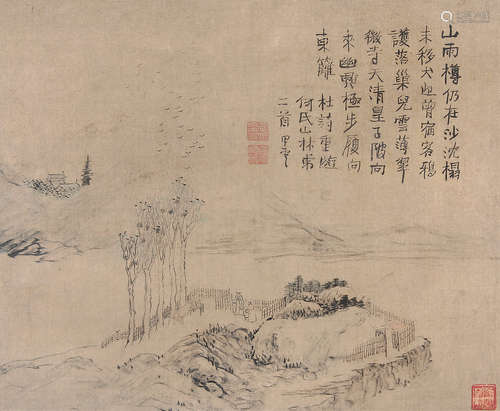 山雨樽仍在沙沈榻
未移犬迎曾宿客鴉
護落巢兒雲薄翠
微寺天清皇子陂向
來幽興極步履向
東籬 杜詩重遊
何氏山林第
二首